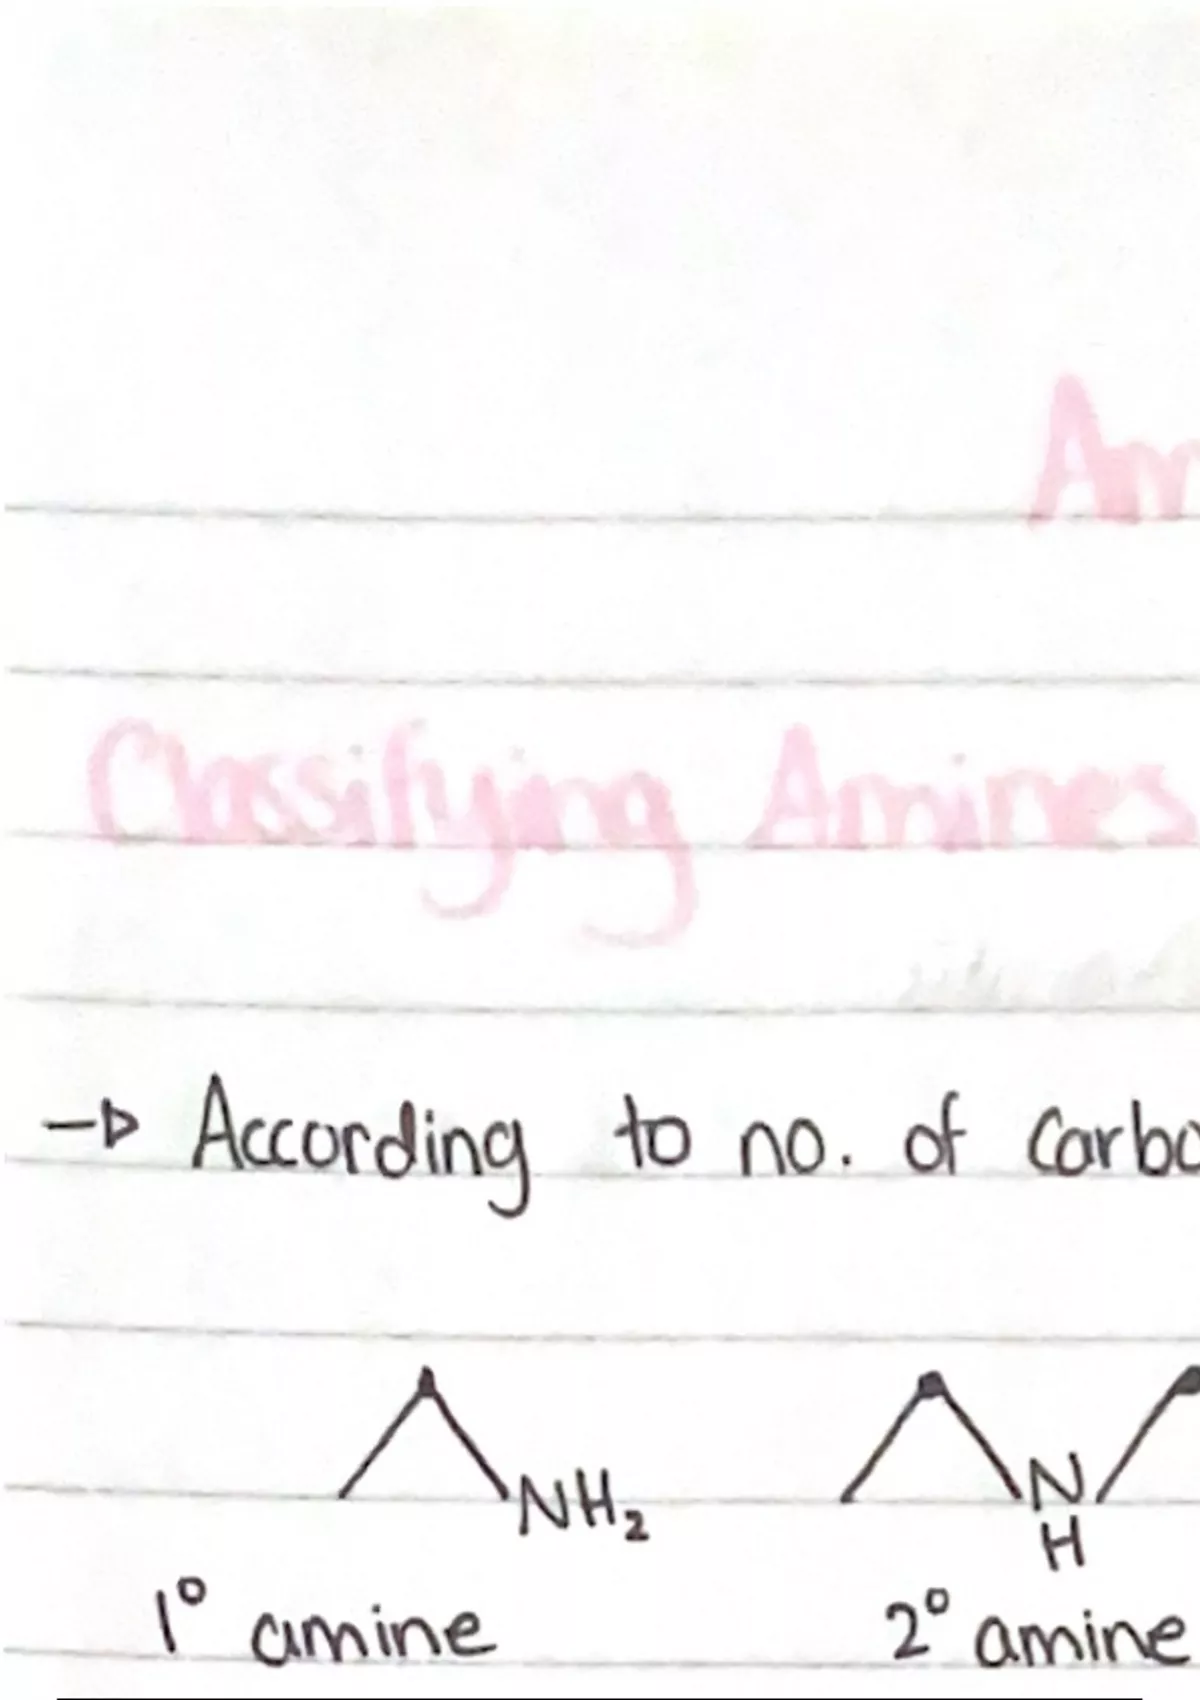 Am
Classifying Amines
→ According to no. of carbo
NH₂ N
H
1° amine 2° amine